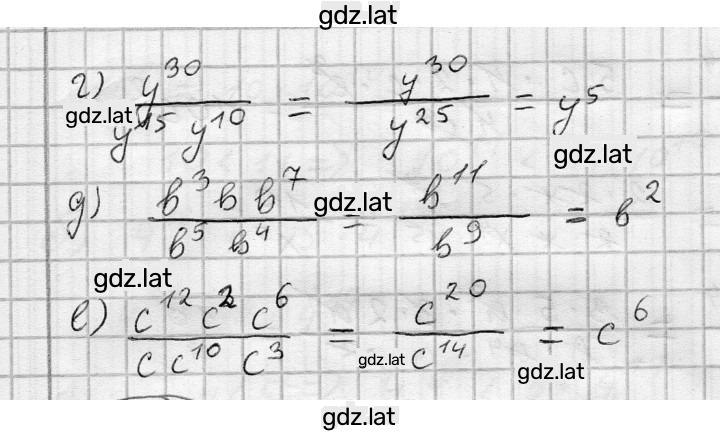 gdz.lat
г) y^30 / (y^15 y^10) = y^30 / y^25 = y^5
gdz.lat
gdz.lat
д) (b^3 b b^7) / (b^5 b^4) = b^11 / b^9 = b^2
gdz.lat
gdz.lat
е) (c^12 c^2 c^6) / (c c^10 c^3) = c^20 / c^14 = c^6
gdz.lat
gdz.lat
gdz.lat